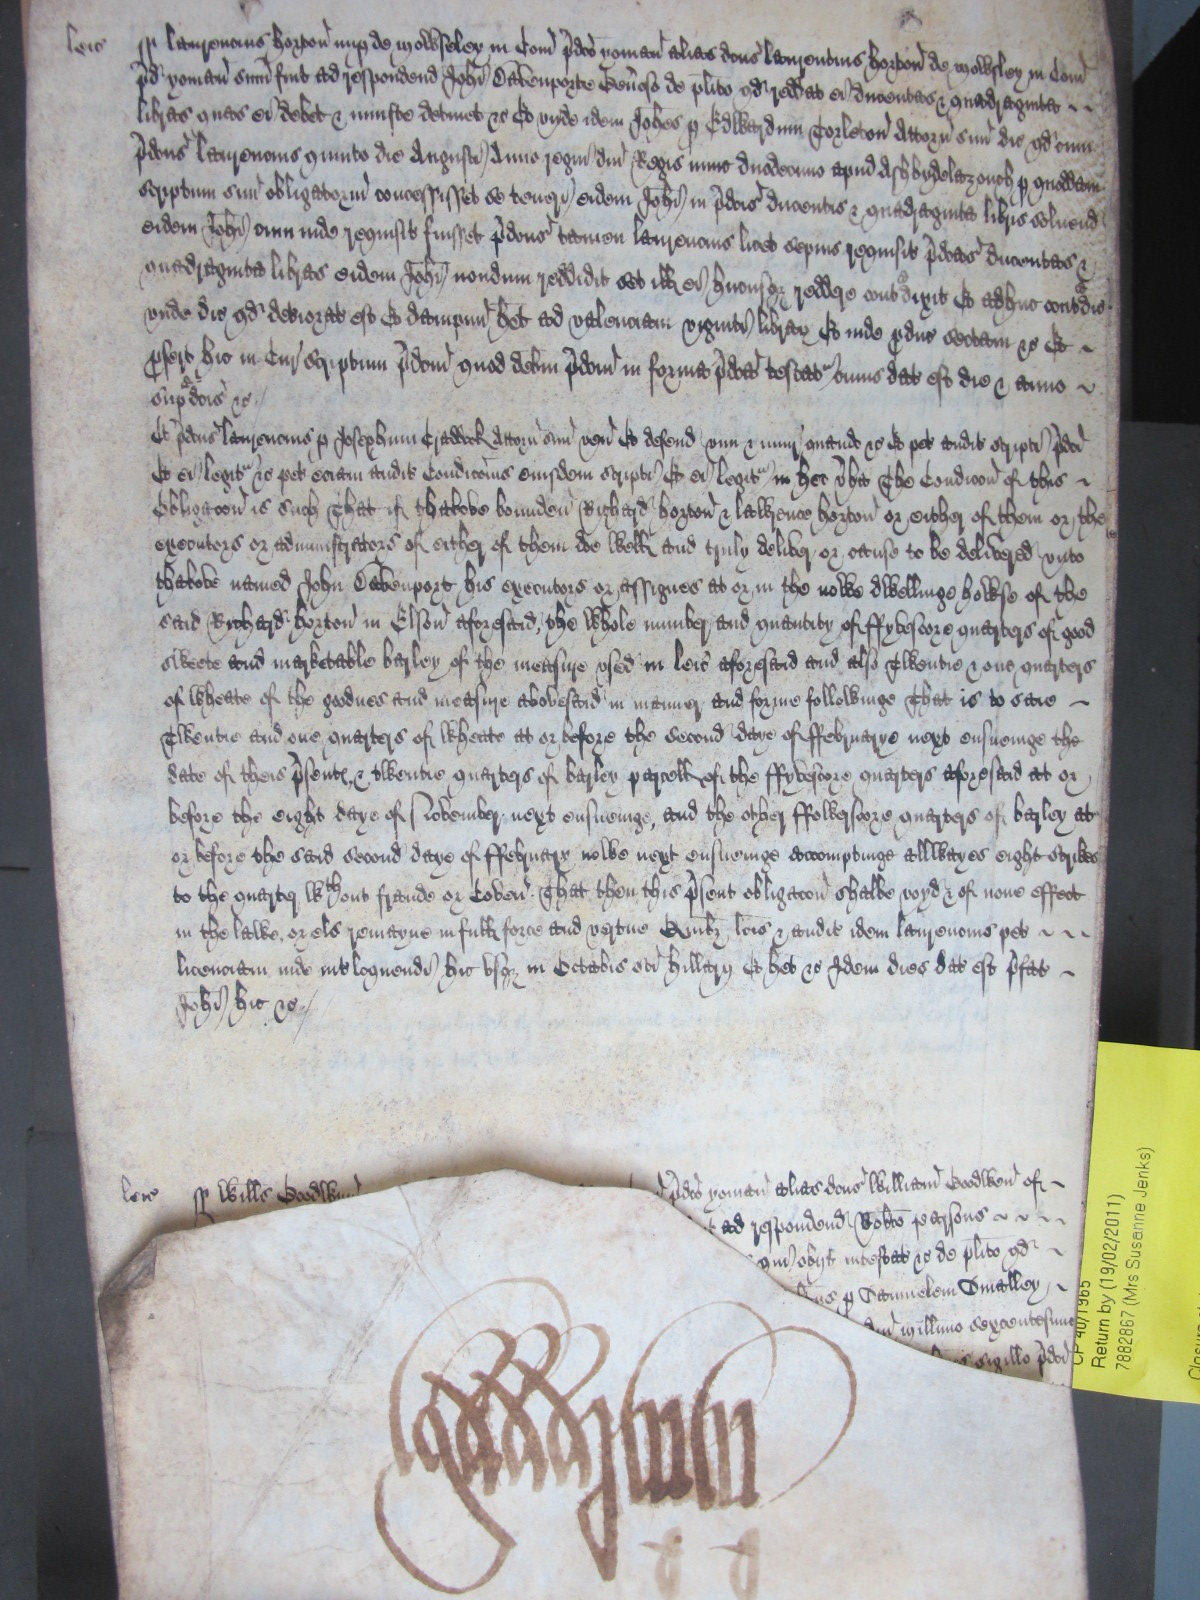 leic ss Laurencius Horton nup de Mowseley in Com p̄dco yoman alias dcus Laurentius Horton de Mowsley in Com
p̄d yoman sum fuit ad respondend Johi Davenporte Gen̄oso de plito qd reddat ei ducentas & quadraginta
libras quas ei debet & iniuste detinet &c Et unde idem Johes p Edwardum Torleton Attorn suu dic qd cum
p̄dcus Laurencius quinto die Augusti Anno regni dni Regis nunc duodecimo apud Ashbydelazouch p quoddam
scriptum suu obligatoriu concessisset se teneri eidem Johi in p̄dcis ducentis & quadraginta libris solvend
eidem Johi cum inde requisit fuisset p̄dcus tamen Laurencius licet sepius requisit p̄dcas ducentas &
quadraginta libras eidem Johi nondum reddidit set ill ei hucusq reddere contradixit Et adhuc contradic
unde dic qd deteriorat est Et dampnu het ad valenciam viginti librar Et inde producit sectam &c Et
profert hic in Cur scriptum p̄dcm quod debitu p̄dcm in forma p̄dca testat cuius dat est die & anno
sup̄dcis &c
Et p̄dcus Laurencius p Josephum Craddock Attorn suu ven Et defend vim & iniur quando &c Et pet audit scripti p̄dci
Et ei legit &c pet eciam audit Condicois eiusdem scripti Et ei legit in hec v̄ba The Condicon of this
Obligacon is such That if thabove bounden Richard Horton & Lawrence Horton or either of them or the
executors or administrators of either of them doe well and truly deliver or cause to be delivered unto
thabove named John Davenport his executors or assignes at or in the nowe dwellinge howse of the
said Richard Horton in Elson aforesaid, the whole number and quantity of ffyvescore quarters of good
sweete and marketable barley of the measure used in leic aforesaid and also Twentie & one quarters
of wheate of the goodnes and measure abovesaid in manner and forme followinge That is to saie
Twentie and one quarters of wheate at or before the second daye of ffebruarye next ensueinge the
date of theis p̄sentes & twentie quarters of barley parcell of the ffyvescore quarters aforesaid at or
before the eight daye of November next ensueinge, and the other ffowerscore quarters of barley at
or before the said second daye of ffebruary nowe next ensueinge accomptinge allwayes eight strikes
to the quarter wthout fraude or Coven That then this p̄sent obligacon shalbe voyd & of none effect
in the lawe, or els remayne in full force and vertue Quibz lcis & auditis idem Laurencius pet
licenciam inde int̄loquendi hic usq in Octabis sci Hillary Et het &c Idem dies dat est p̄fat
Johi hic &c
leic ss Wills Goodwin p̄dco yoman alias dcus William Goodwen of
ad respondend Robto Parsons
qui obijt intestat &c de plito qd
p Samuelem Smalley
dni millimo sexcentesimo
sigillo p̄dci
CP 40/1965
Return by (19/02/2011)
7882867 (Mrs Susanne Jenks)